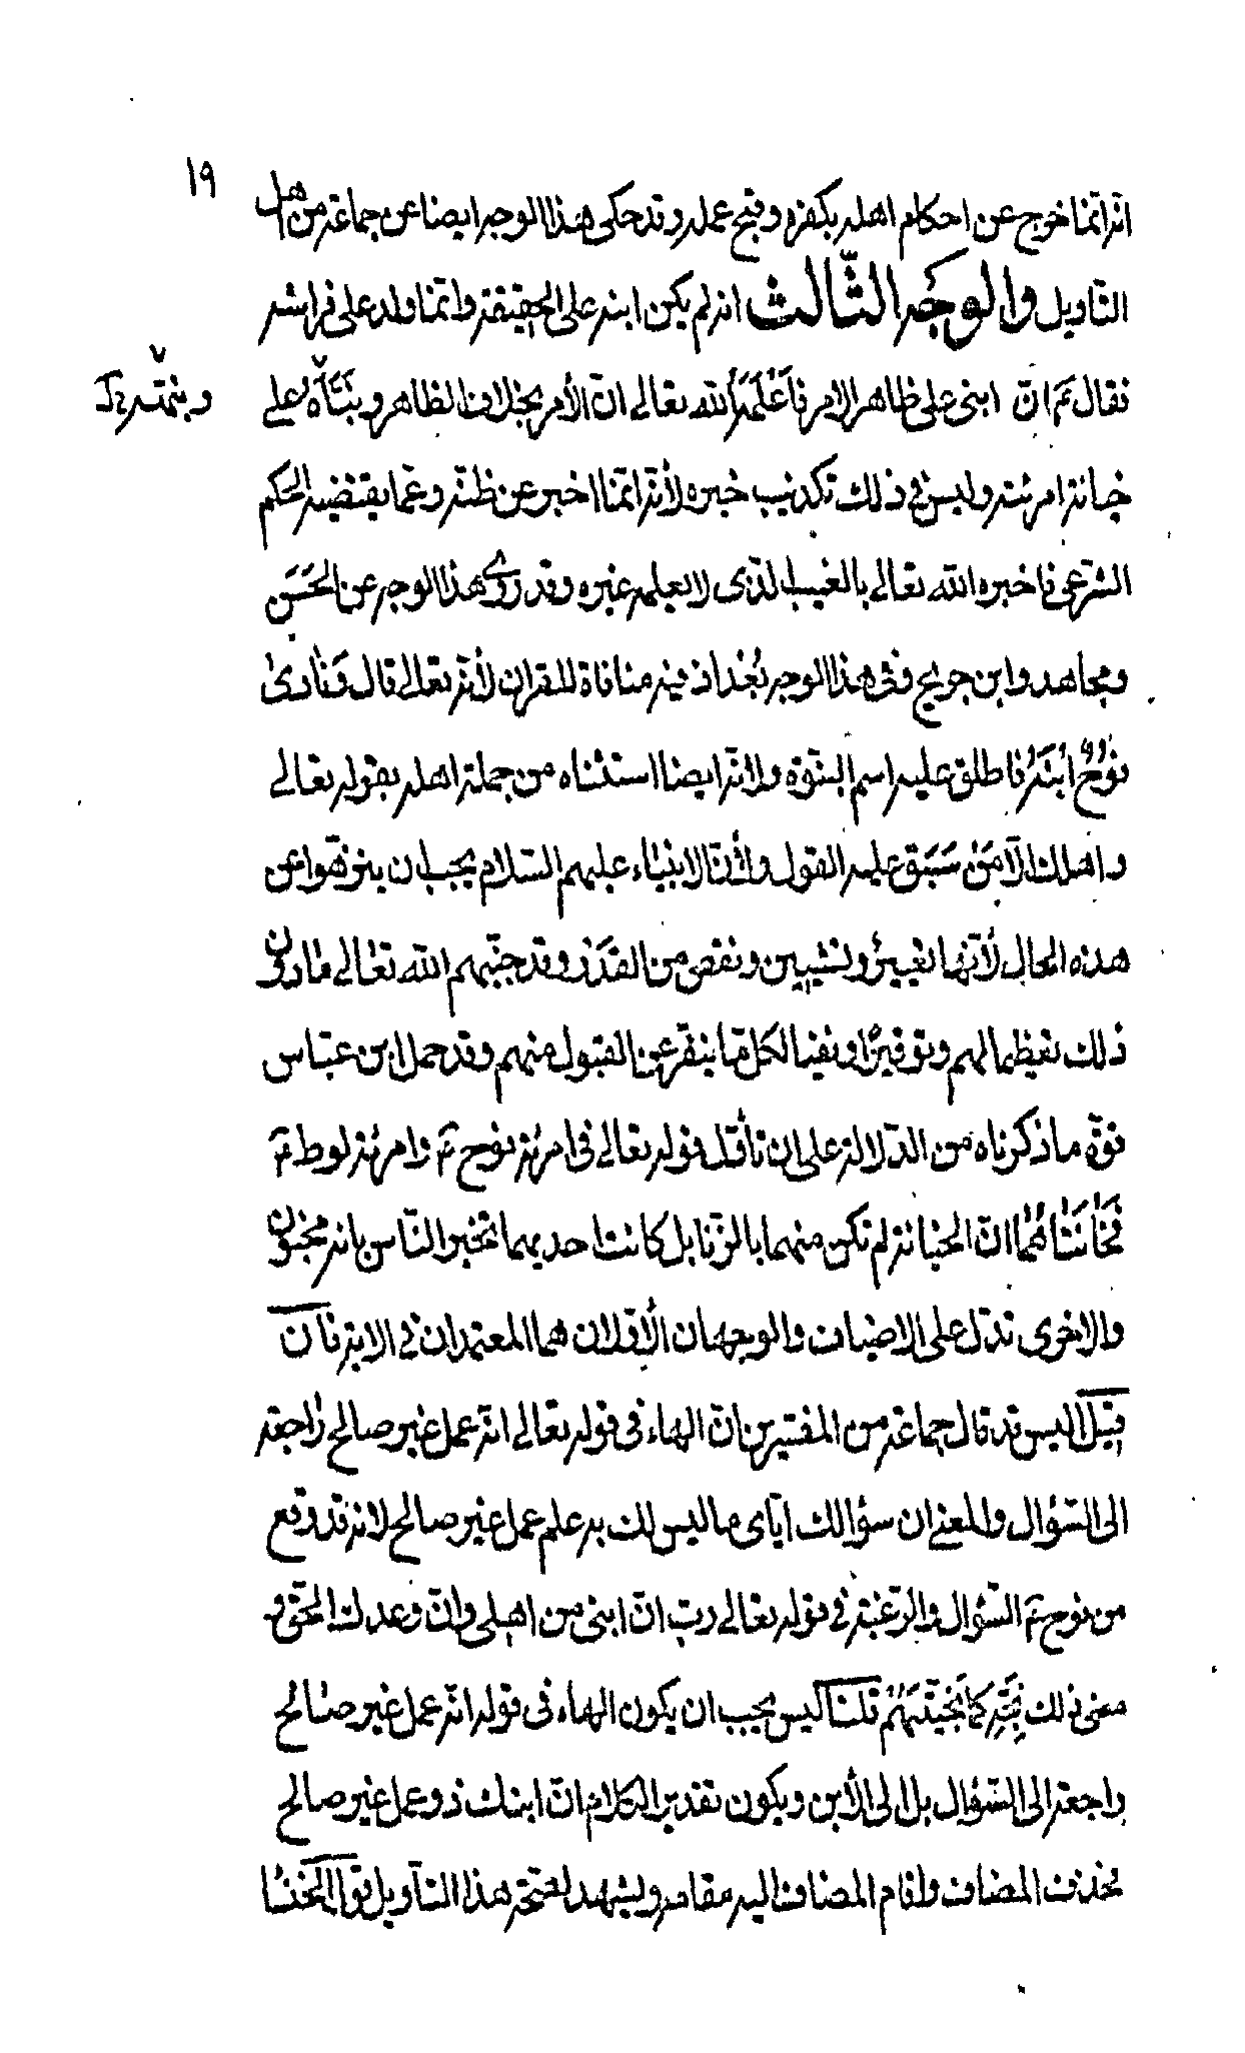 ١٩
انّه انّما خرج عن احكام اهله بكفره وقبح عمله وقد حكى هذا الوجه ايضا عن جماعة من اهل
التّاويل والوجه الثّالث انه لم يكن ابنه على الحقيقة وانّما ولد على فراشه
فقال عم انّ ابنى على ظاهر الامر فَاَعْلَمَهُ الله تعالى انّ الأمر بخلاف الظاهر ونَبَّأَهُ على
خيانة امرئته وليس فى ذلك تكذيب خبره لأنّه انّما اخبر عن ظنّه وعمّا يقتضيه الحكم
الشرعى فاخبره الله تعالى بالغيب الّذى لا يعلمه غيره وقد روى هذا الوجه عن الحَسَن
ومجاهد وابن جريج وفى هذا الوجه بُعْد اذ فيه منافاة للقران لأنّه تعالى قال وَنادىٰ
نُوْحٌ ابْنَهُ فاطلق عليه اسم البنوّة ولانّه ايضا استثناه من جملة اهله بقوله تعالى
واهلك الّا مَنْ سَبَقَ عليه القول ولأنّ الانبياء عليهم السّلام يجب ان ينزّهوا عن
هذه الحال لأنّها تعييرٌ وتشيين ونقص من القَدْر وقد جنّبهم الله تعالى ما دون
ذلك تعظيما لهم وتوقيرًا ونفيا لكل ما ينفّر عن القبول منهم وقد حمل ابن عبّاس
قوّة ما ذكرناه من الدّلالة على ان تأوّل قوله تعالى فى امرئة نوح عم وامرئة لوط عم
فَخَانَتَاهُمٰا انّ الخيانة لم تكن منهما بالزّنا بل كانت احديهما تخبر النّاس بانه مجنون
والاخرى تدلّ على الاضياف والوجهان الأوّلان هما المعتمدان فى الاية فان
قيل اليس قد قال جماعة من المفسّرين انّ الهاء فى قوله تعالى انّه عمل غير صالح راجعة
الى السّؤال والمعنى ان سؤالك ايّاى ما ليس لك به علم عمل غير صالح لانه قد وقع
من نوح عم السّؤال والرّغبة فى قوله تعالى ربّ انّ ابنى من اهلى وانّ وعدك الحقّ و
معنى ذلك نَجِّهِ كما نَجَّيْتَهُمْ قلنا ليس يجب ان يكون الهاء فى قوله انّه عمل غير صالح
راجعة الى السّؤال بل الى الأبن ويكون تقدير الكلام انّ ابنك ذو عمل غير صالح
فحذف المضاف واقام المضاف اليه مقامه ويشهد لصحّة هذا التأويل قول الخنساء